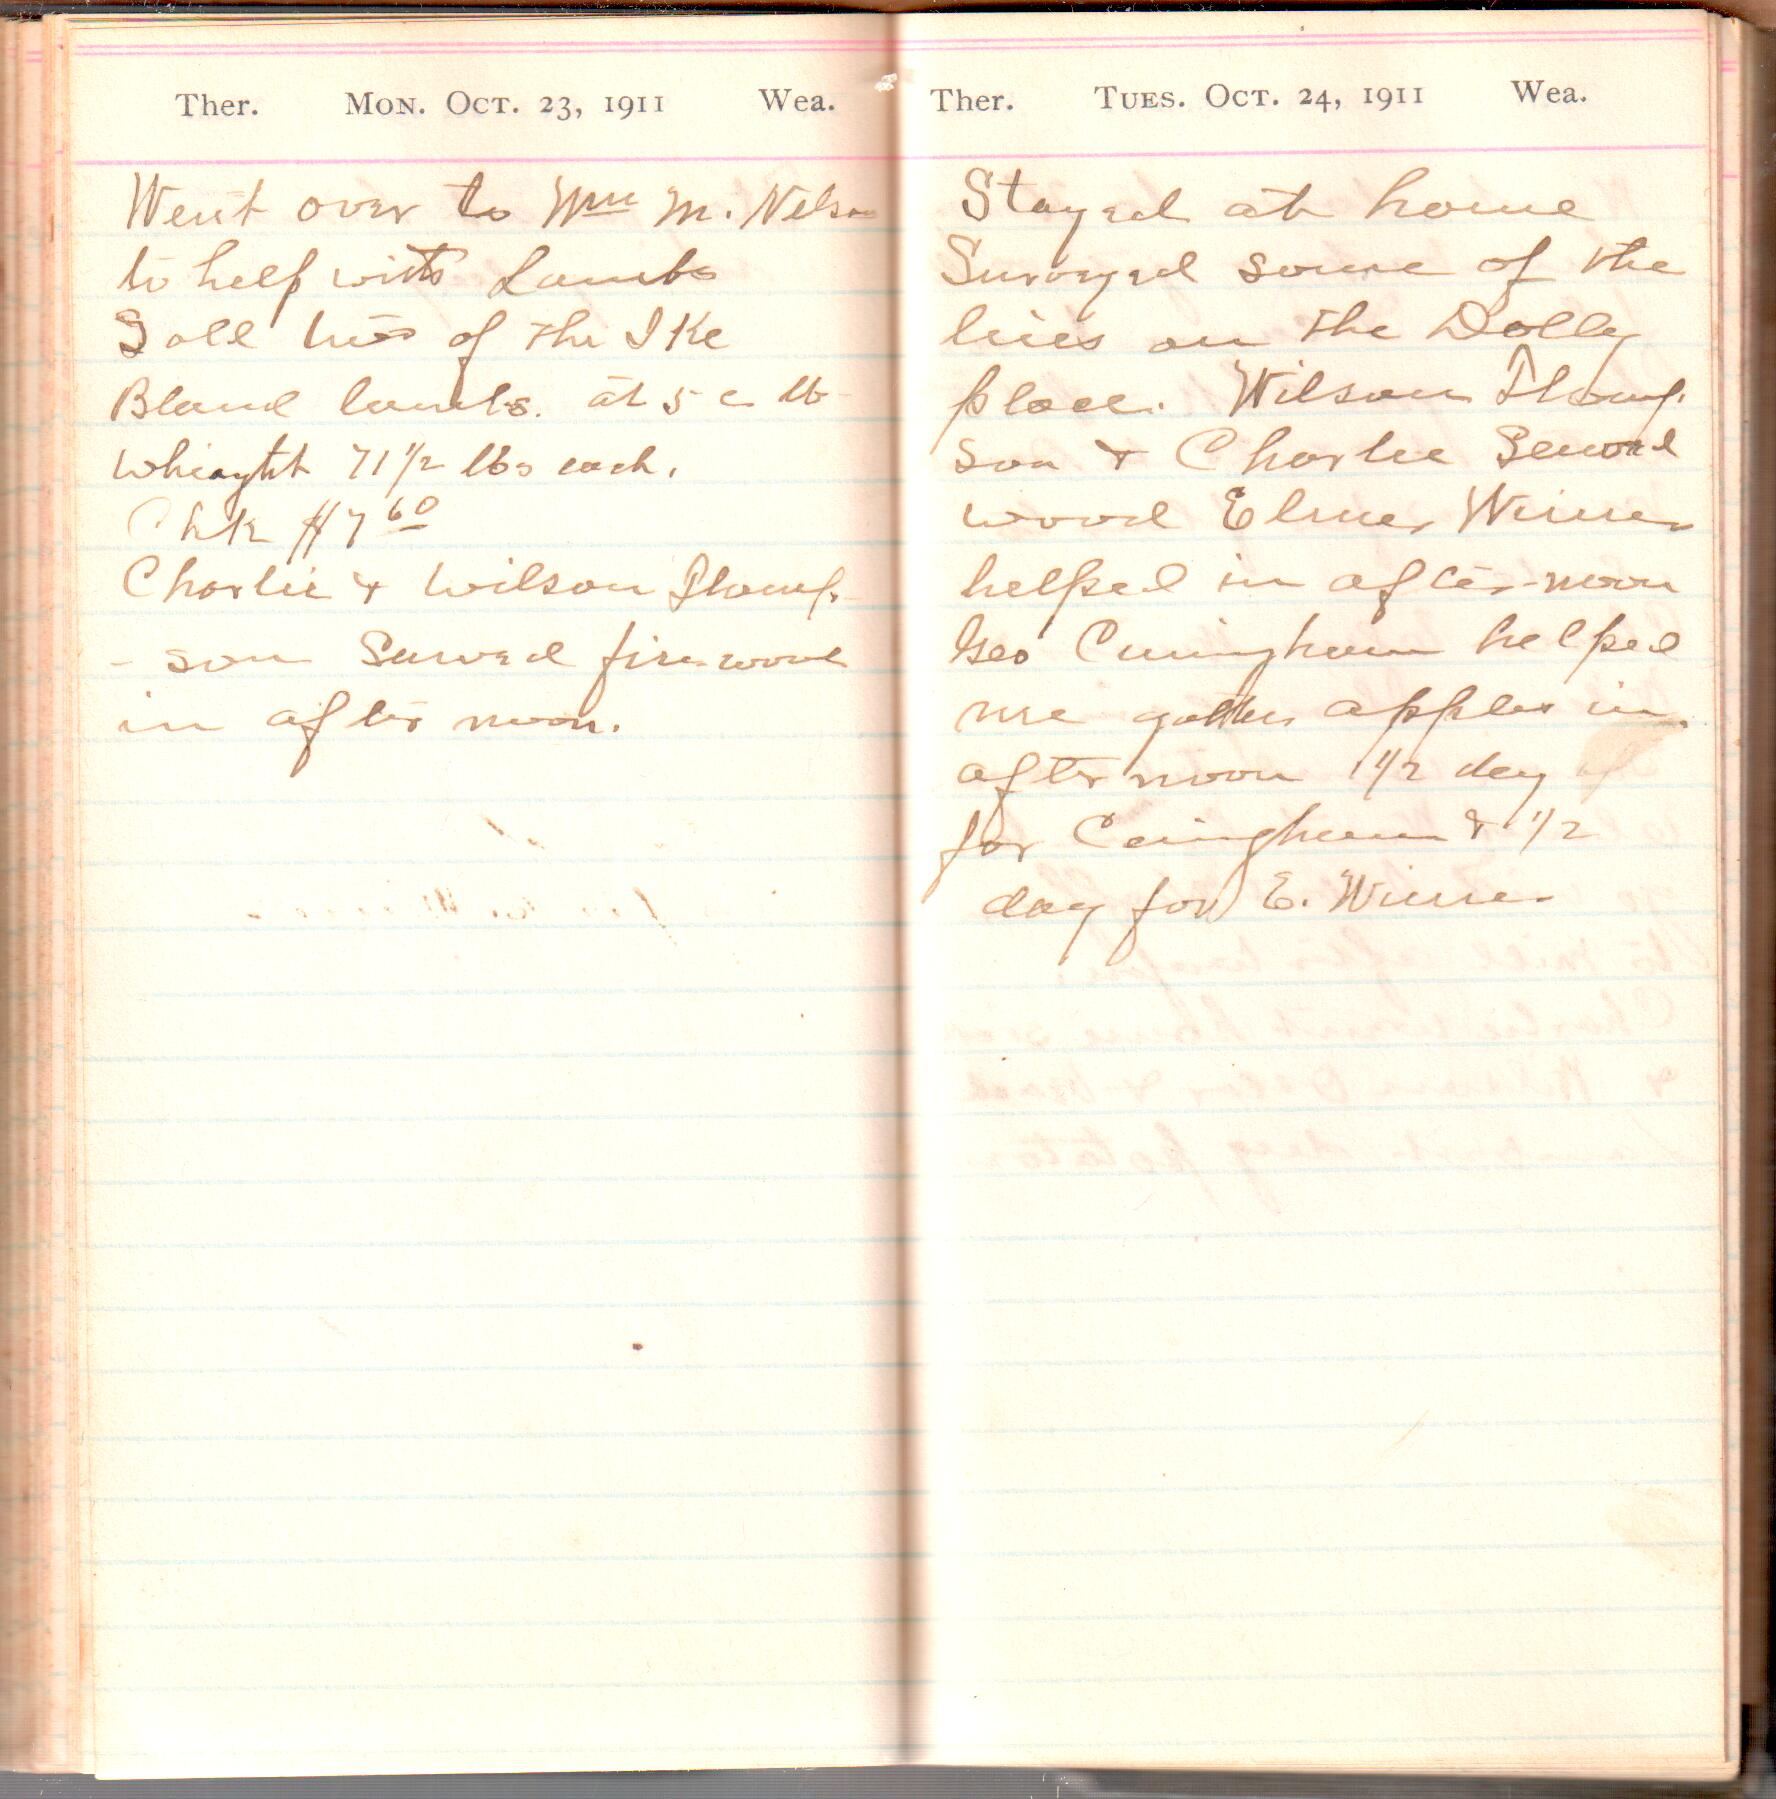 Ther. Mon. Oct. 23, 1911 Wea.
Went over to Wm M. Nelson
to help with Lambs
Sold two of the Ike
Bland lambs. at 5 c lb
Whieght 71 1/2 lbs each.
Chk $7 60
Charlie & Wilson Thomp-
- son Sawed fire wood
in after noon.
Ther. Tues. Oct. 24, 1911 Wea.
Stayed at home
Surveyed some of the
lines on the Dolly
place. Wilson Thomp.
son & Charlie Sawed
wood Elmer
helped in after-noon
Geo Cuningham helped
me gather apples in
after noon 1/2 day
for Cuningham & 1/2
day for E.